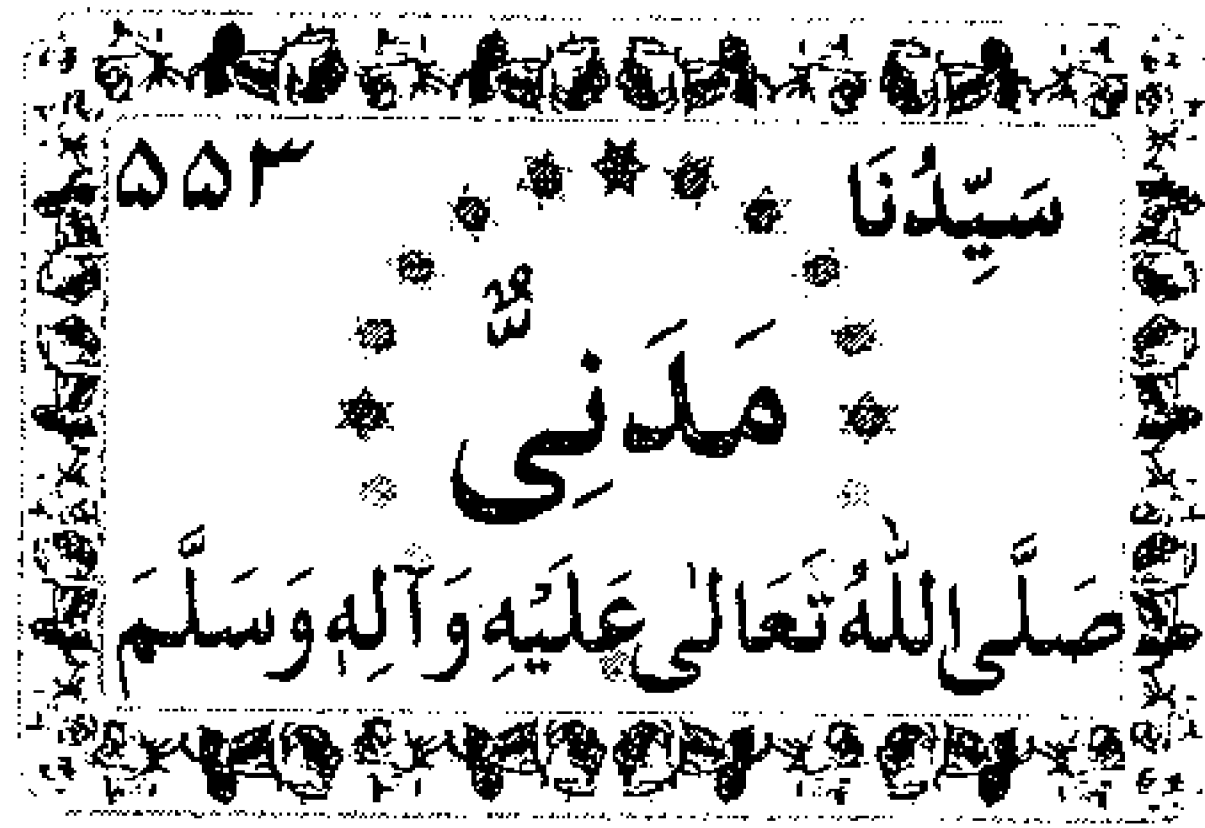 سَيِّدُنَا ۵۵۳
مَدَنِیٌّ
صَلَّى اللّٰهُ تَعَالٰى عَلَيْهِ وَآلِهٖ وَسَلَّمَ